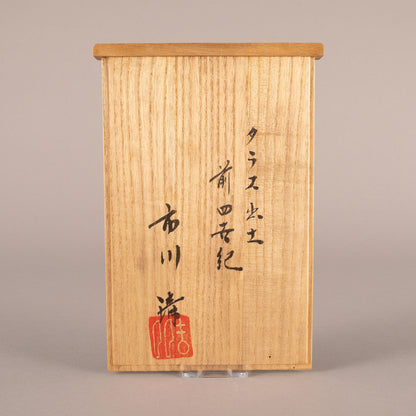 タラス出土
前四世紀
市川 清